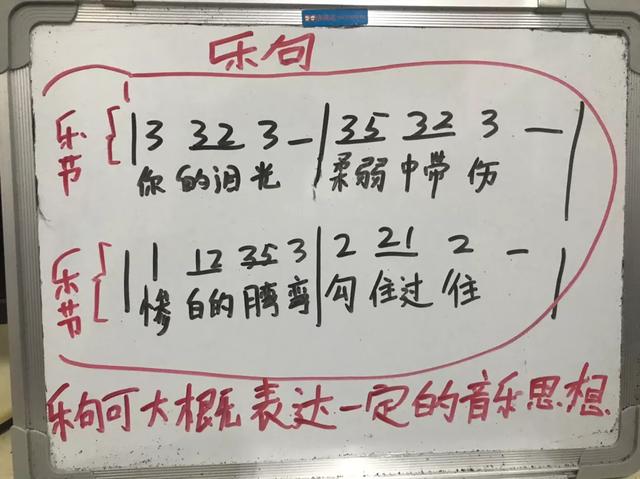 乐句
乐节 | 3 32 3 — | 35 32 3 — |
你的泪光 柔弱中带伤
乐节 | 1 12 35 3 | 2 21 2 - |
惨白的月弯弯 勾住过往
乐句可大概表达一定的音乐思想